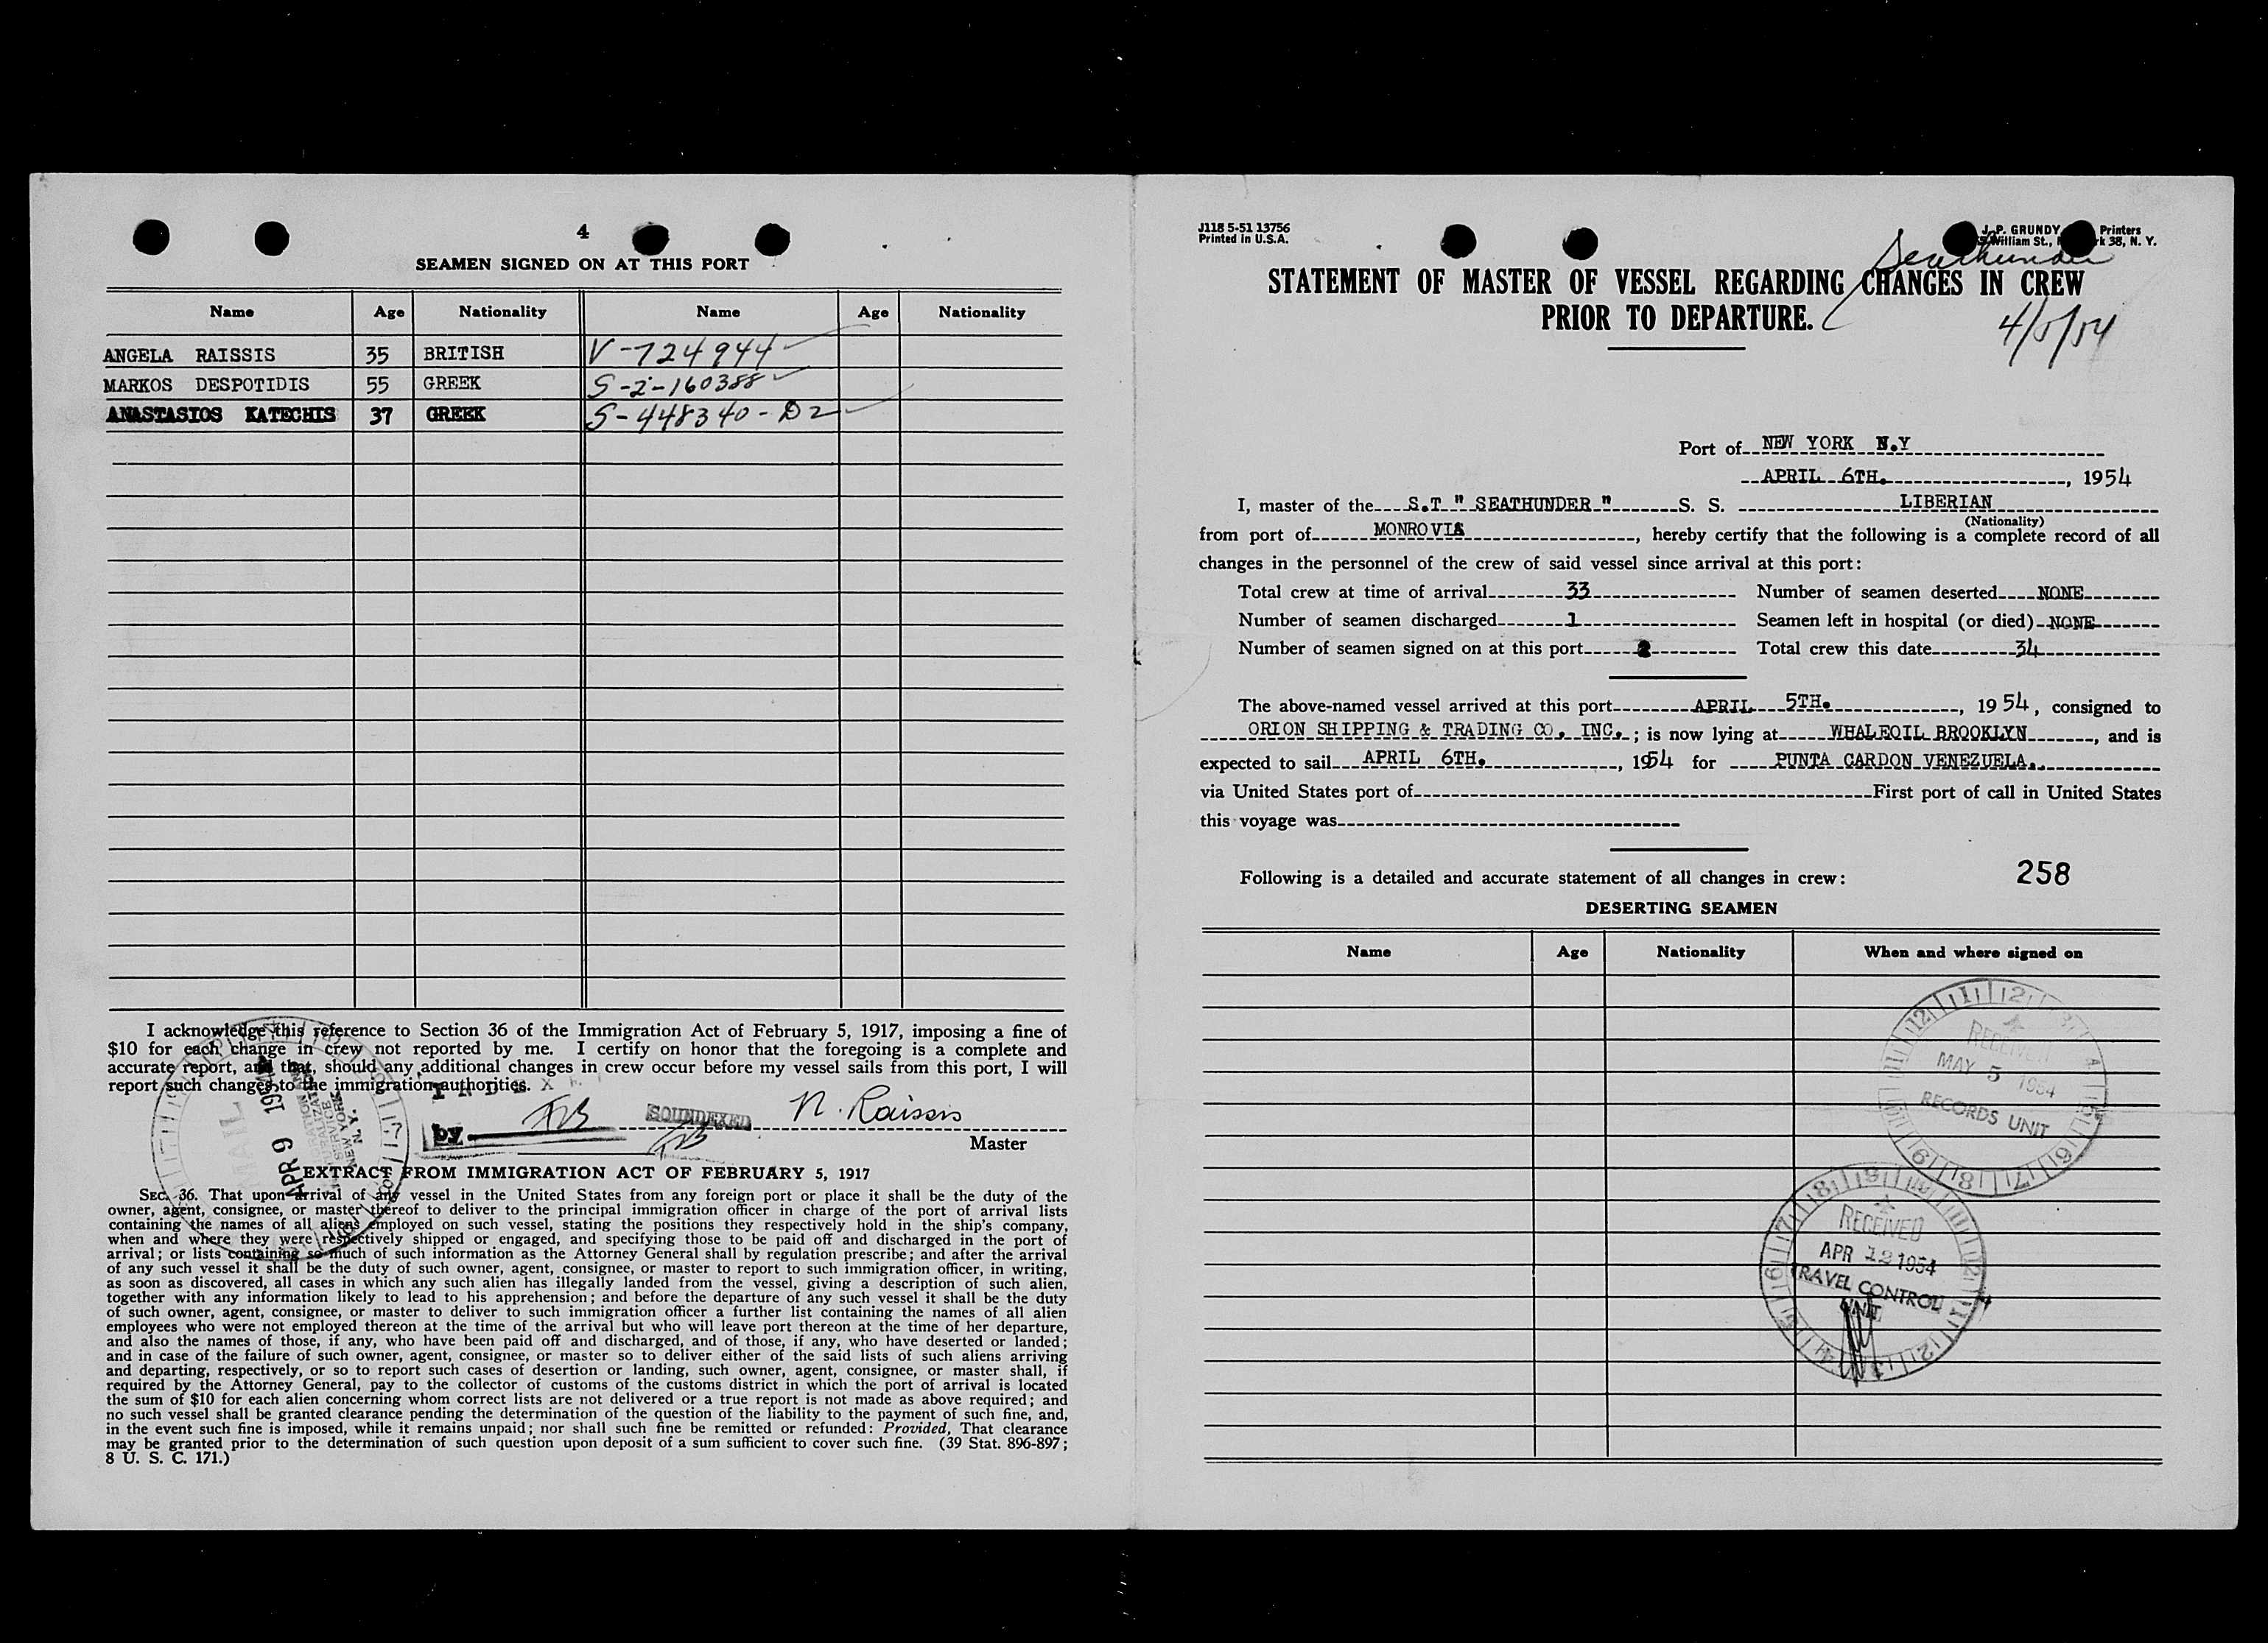 4
SEAMEN SIGNED ON AT THIS PORT
Name Age Nationality Name Age Nationality
ANGELA RAISSIS 35 BRITISH V-724944
MARKOS DESPOTIDIS 55 GREEK S-2-160388
ANASTASIOS KATECHIS 37 GREEK S-448340-D2
I acknowledge this reference to Section 36 of the Immigration Act of February 5, 1917, imposing a fine of
$10 for each change in crew not reported by me. I certify on honor that the foregoing is a complete and
accurate report, and that, should any additional changes in crew occur before my vessel sails from this port, I will
report such changes to the immigration authorities.
by
SOUNDEXED
N. Raissis
Master
APR 9 1954
MAIL
SERVICE
NEW YORK
N. Y.
EXTRACT FROM IMMIGRATION ACT OF FEBRUARY 5, 1917
SEC. 36. That upon arrival of any vessel in the United States from any foreign port or place it shall be the duty of the
owner, agent, consignee, or master thereof to deliver to the principal immigration officer in charge of the port of arrival lists
containing the names of all aliens employed on such vessel, stating the positions they respectively hold in the ship's company,
when and where they were respectively shipped or engaged, and specifying those to be paid off and discharged in the port of
arrival; or lists containing so much of such information as the Attorney General shall by regulation prescribe; and after the arrival
of any such vessel it shall be the duty of such owner, agent, consignee, or master to report to such immigration officer, in writing,
as soon as discovered, all cases in which any such alien has illegally landed from the vessel, giving a description of such alien,
together with any information likely to lead to his apprehension; and before the departure of any such vessel it shall be the duty
of such owner, agent, consignee, or master to deliver to such immigration officer a further list containing the names of all alien
employees who were not employed thereon at the time of the arrival but who will leave port thereon at the time of her departure,
and also the names of those, if any, who have been paid off and discharged, and of those, if any, who have deserted or landed;
and in case of the failure of such owner, agent, consignee, or master so to deliver either of the said lists of such aliens arriving
and departing, respectively, or so to report such cases of desertion or landing, such owner, agent, consignee, or master shall, if
required by the Attorney General, pay to the collector of customs of the customs district in which the port of arrival is located
the sum of $10 for each alien concerning whom correct lists are not delivered or a true report is not made as above required; and
no such vessel shall be granted clearance pending the determination of the question of the liability to the payment of such fine, and,
in the event such fine is imposed, while it remains unpaid; nor shall such fine be remitted or refunded: Provided, That clearance
may be granted prior to the determination of such question upon deposit of a sum sufficient to cover such fine. (39 Stat. 896-897;
8 U. S. C. 171.)
J118 5-51 13756
Printed in U.S.A.
J. P. GRUNDY Printers
William St., 38, N. Y.
Seathunder
STATEMENT OF MASTER OF VESSEL REGARDING CHANGES IN CREW
PRIOR TO DEPARTURE.
4/5/54
Port of NEW YORK N.Y
APRIL 6TH., 1954
I, master of the S.T " SEATHUNDER " S. S. LIBERIAN
(Nationality)
from port of MONROVIA, hereby certify that the following is a complete record of all
changes in the personnel of the crew of said vessel since arrival at this port:
Total crew at time of arrival 33 Number of seamen deserted NONE
Number of seamen discharged 1 Seamen left in hospital (or died) NONE
Number of seamen signed on at this port 2 Total crew this date 34
The above-named vessel arrived at this port APRIL 5TH., 1954, consigned to
ORION SHIPPING & TRADING CO. INC.; is now lying at WHALEOIL BROOKLYN, and is
expected to sail APRIL 6TH., 1954 for PUNTA CARDON VENEZUELA.
via United States port of First port of call in United States
this voyage was
Following is a detailed and accurate statement of all changes in crew: 258
DESERTING SEAMEN
Name Age Nationality When and where signed on
RECEIVED
MAY 5 1954
RECORDS UNIT
RECEIVED
APR 12 1954
TRAVEL CONTROL
UNIT